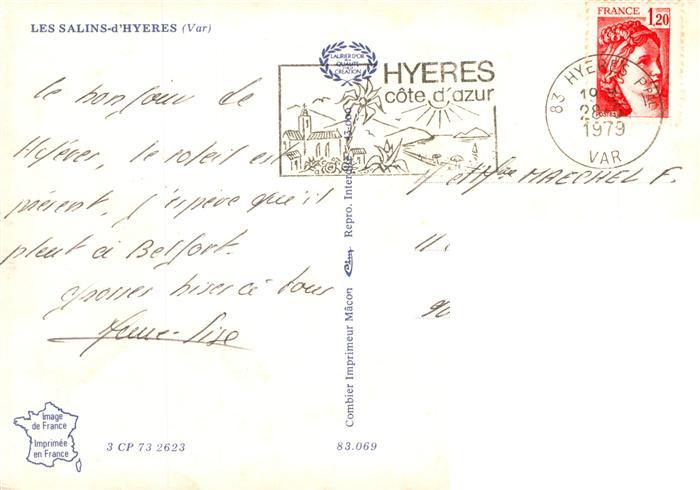 LES SALINS-d'HYERES (Var)
LAURIER D'OR
DE LA
QUALITÉ
CRÉATION
HYERES
côte d'azur
FRANCE 1,20
POSTES
83 HYERES PPAL
19 H
28
1979
VAR
le bonjour de
Hyères, le soleil est
présent, j'espère qu'il
pleut à Belfort.
grosses bises à tous
Anne-Lise
et Mme MAECHEL F.
11
90
Combier Imprimeur Mâcon Cim Repro. Interdite
Image
de France
Imprimée
en France
3 CP 73 2623
83.069